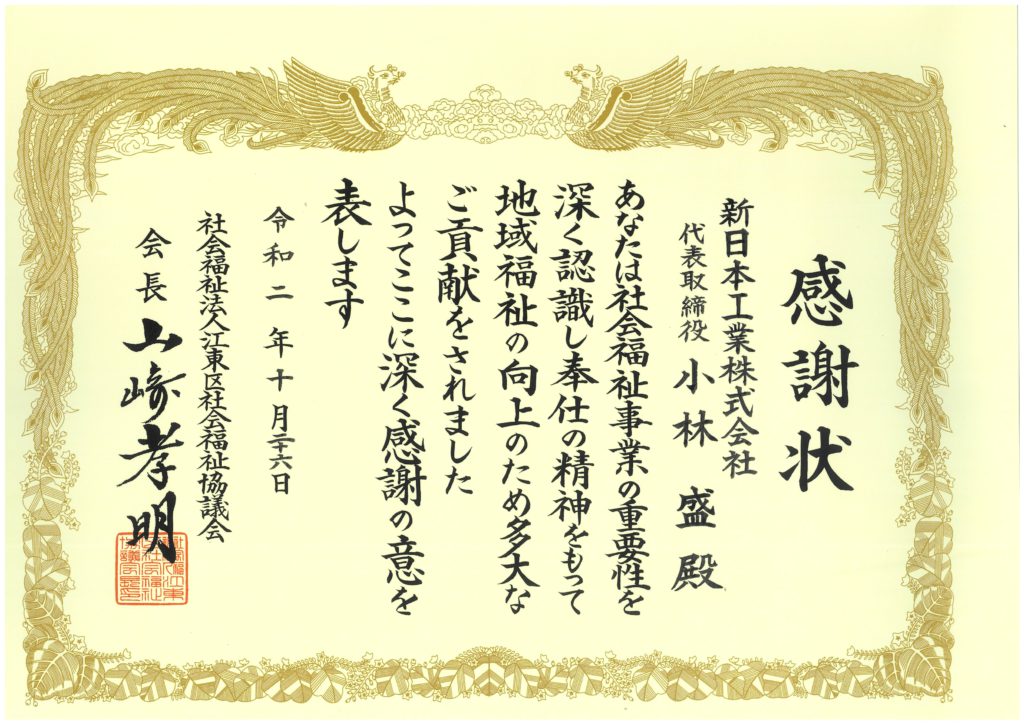 感謝状
新日本工業株式会社
代表取締役 小林 盛 殿
あなたは社会福祉事業の重要性を
深く認識し奉仕の精神をもって
地域福祉の向上のため多大な
ご貢献をされました
よってここに深く感謝の意を
表します
令和二年十月二十六日
社会福祉法人江東区社会福祉協議会
会長 山﨑孝明